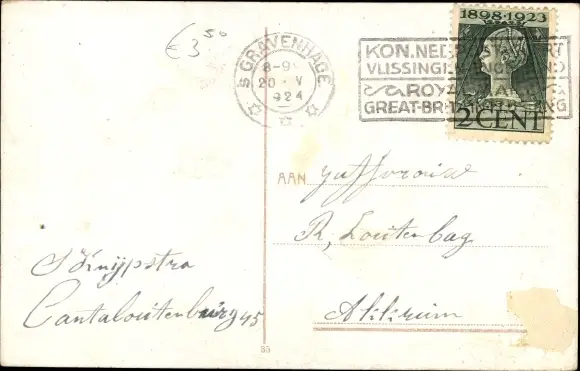 €3,50
'S GRAVENHAGE
8-9
20 V
1924
KON. NED.
VLISSINGEN
ROYAL
GREAT-BR
1898·1923
2 CENT
AAN
Juffrouw
R, Loutenbag
Akkrum
S Knijpstra
Cantaloutenburg 45
35